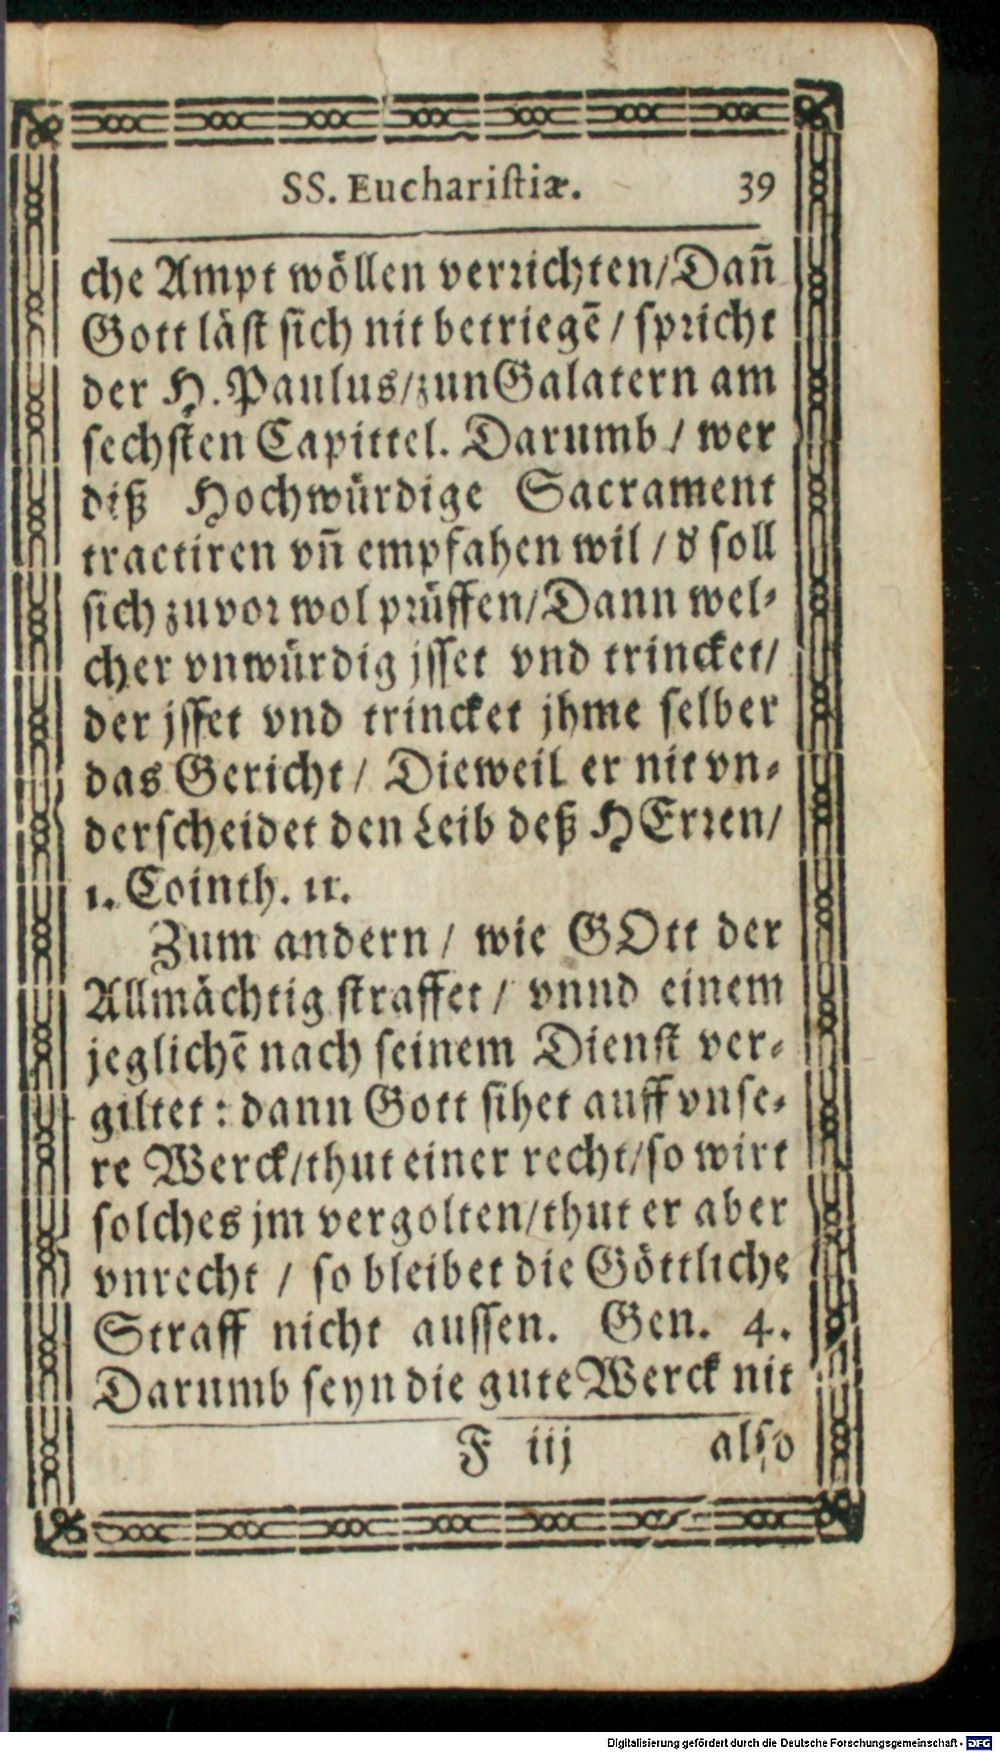 SS. Euchariſtiæ. 39
che Ampt wöllen verrichten/Dañ
Gott läſt ſich nit betriegē / ſpricht
der H. Paulus/zun Galatern am
ſechſten Capittel. Darumb / wer
diß Hochwürdige Sacrament
tractiren vn̄ empfahen wil / d' ſoll
ſich zuvor wol prüffen/Dann wel⸗
cher vnwürdig jſſet vnd trincket/
der jſſet vnd trincket jhme ſelber
das Gericht / Dieweil er nit vn⸗
derſcheidet den Leib deß HErren/
1. Cointh. 11.
Zum andern / wie GOtt der
Allmächtig ſtraffet / vnnd einem
jeglichē nach ſeinem Dienſt ver⸗
giltet : dann Gott ſihet auff vnſe⸗
re Werck/thut einer recht/ſo wirt
ſolches jm vergolten/thut er aber
vnrecht / ſo bleibet die Göttliche
Straff nicht auſſen. Gen. 4.
Darumb ſeyn die gute Werck nit
F iij alſo
Digitalisierung gefördert durch die Deutsche Forschungsgemeinschaft - DFG